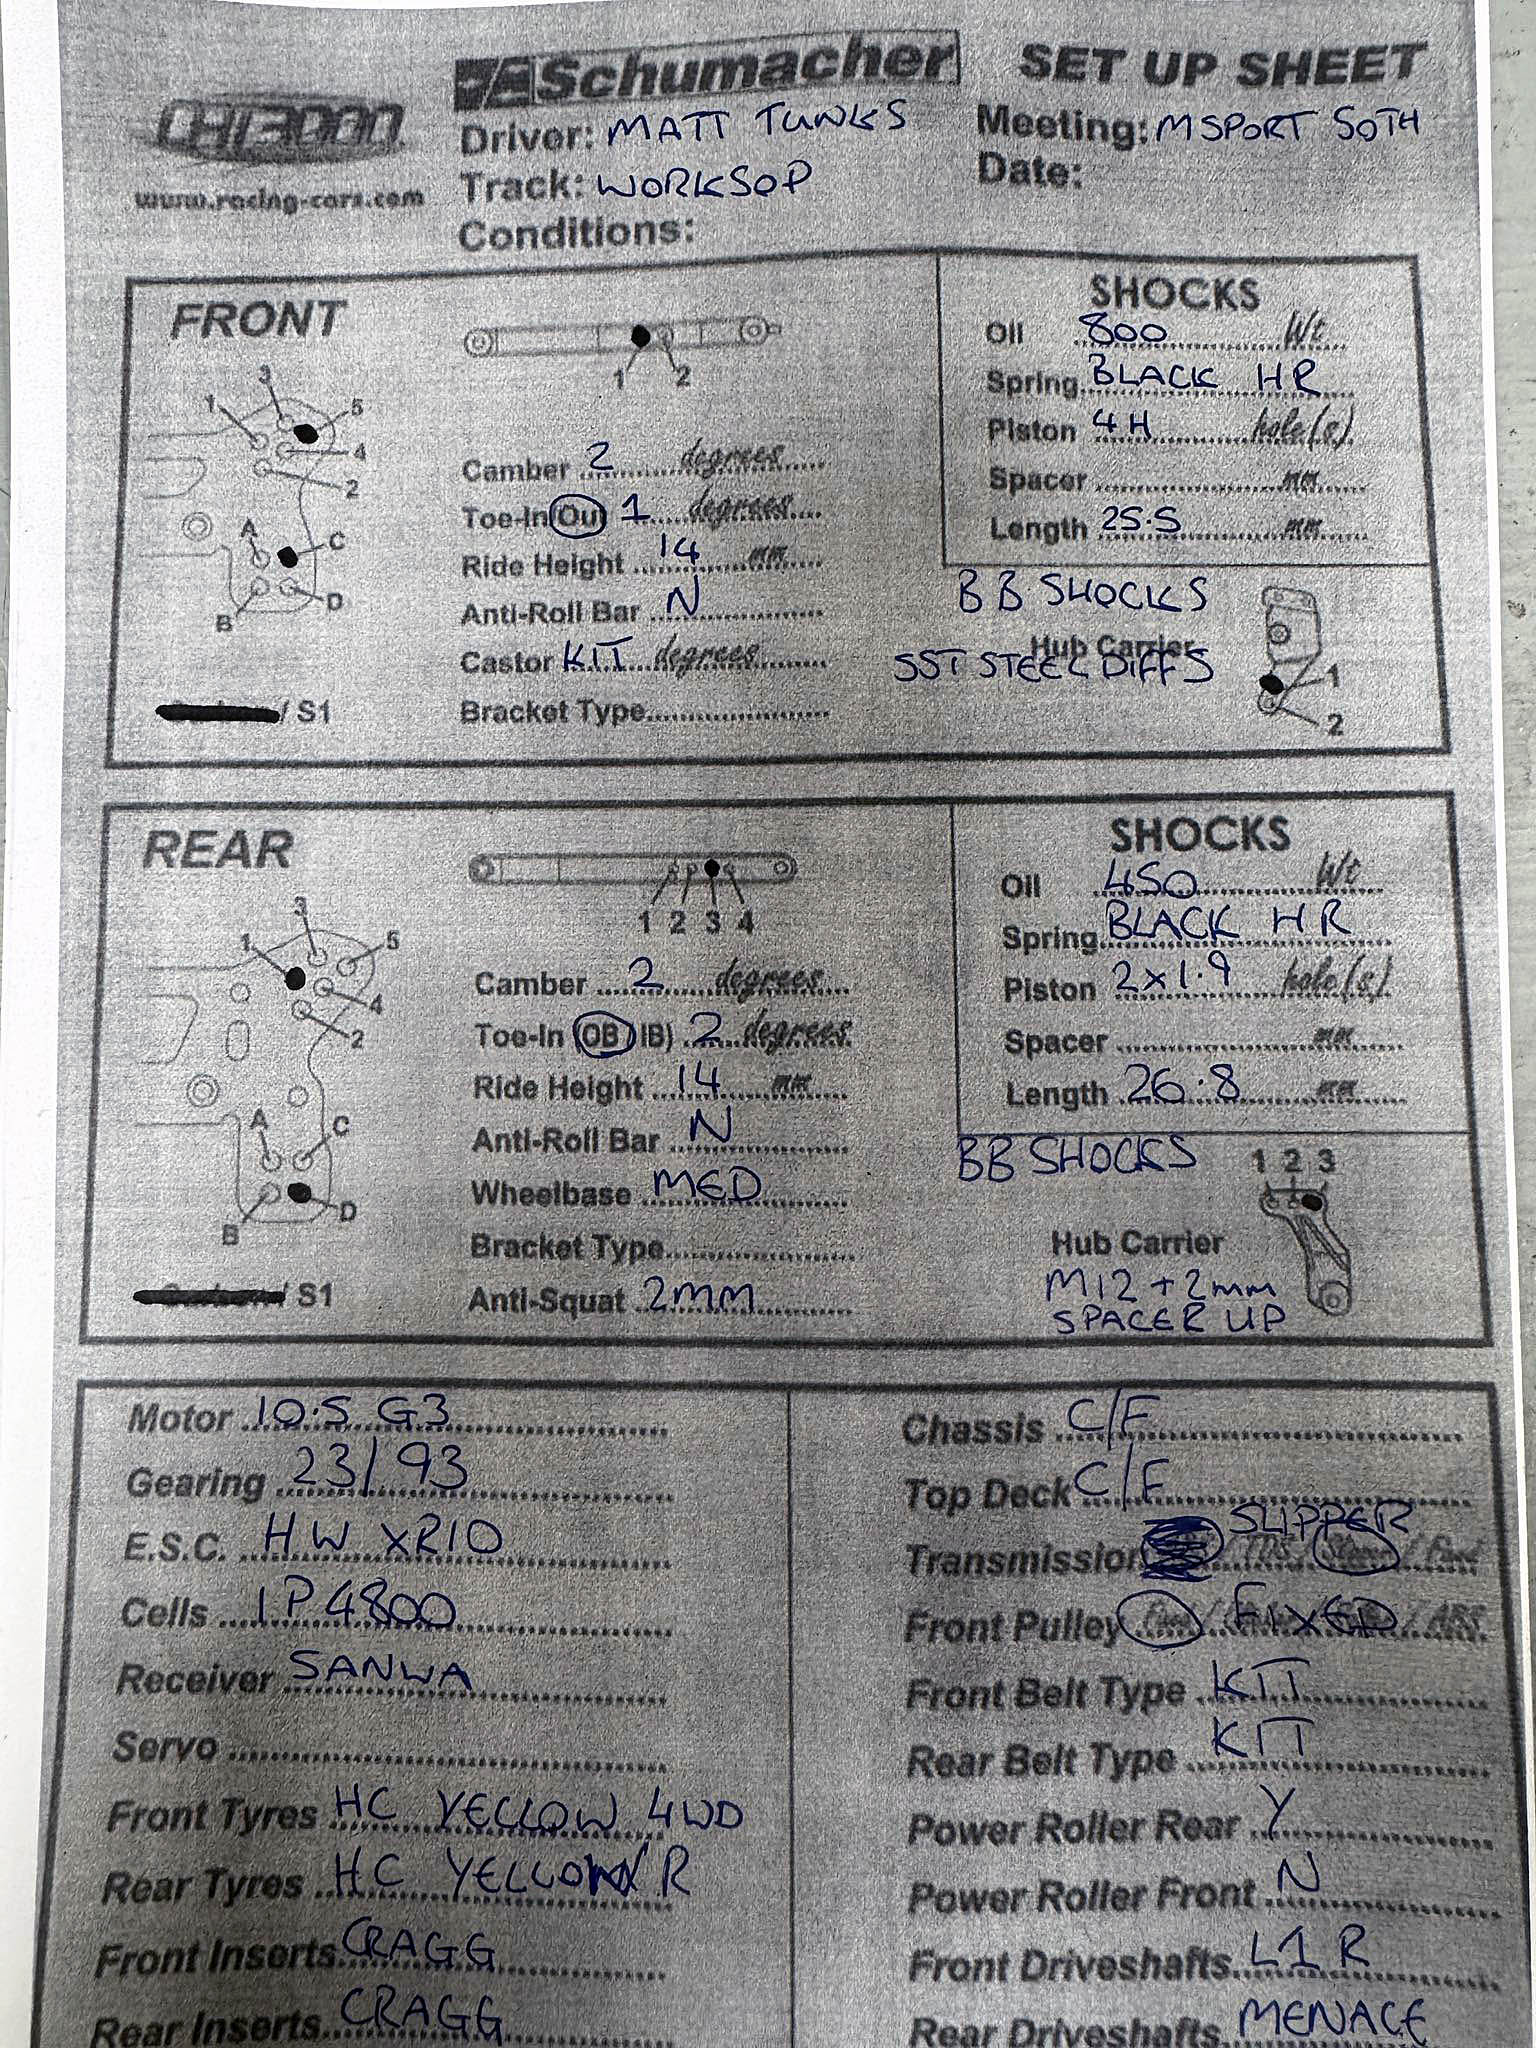 CAT3000
Schumacher SET UP SHEET
www.racing-cars.com
Driver: MATT TUNKS
Meeting: MSPORT 50TH
Track: WORKSOP
Date:
Conditions:
FRONT
1 2
1 3 5 4 2
A C B D
Camber 2 degrees
Toe-In Ou 1 degrees
Ride Height 14 mm
Anti-Roll Bar N
Castor KIT degrees
/ S1
Bracket Type
SHOCKS
Oil 800 Wt
Spring BLACK HR
Piston 4H hole(s)
Spacer mm
Length 25.5 mm
BB SHOCKS
Hub Carrier
SST STEEL DIFFS
1
2
REAR
1 2 3 4
1 3 5 4 2
A C B D
Camber 2 degrees
Toe-In (OB IB) 2 degrees
Ride Height 14 mm
Anti-Roll Bar N
Wheelbase MED
Bracket Type
/ S1
Anti-Squat 2MM
SHOCKS
Oil 450 Wt
Spring BLACK HR
Piston 2x1.9 hole(s)
Spacer mm
Length 26.8 mm
BB SHOCKS
1 2 3
Hub Carrier
M12 + 2mm
SPACER UP
Motor 10.5 G3
Gearing 23/93
E.S.C. HW XR10
Cells IP 4800
Receiver SANWA
Servo
Front Tyres HC YELLOW 4WD
Rear Tyres HC YELLOW R
Front Inserts CRAGG
Rear Inserts CRAGG
Chassis C/F
Top Deck C/F
SLIPPER
Transmission
Front Pulley FIXED / ABS
Front Belt Type KIT
Rear Belt Type KIT
Power Roller Rear Y
Power Roller Front N
Front Driveshafts L1R
Rear Driveshafts MENACE